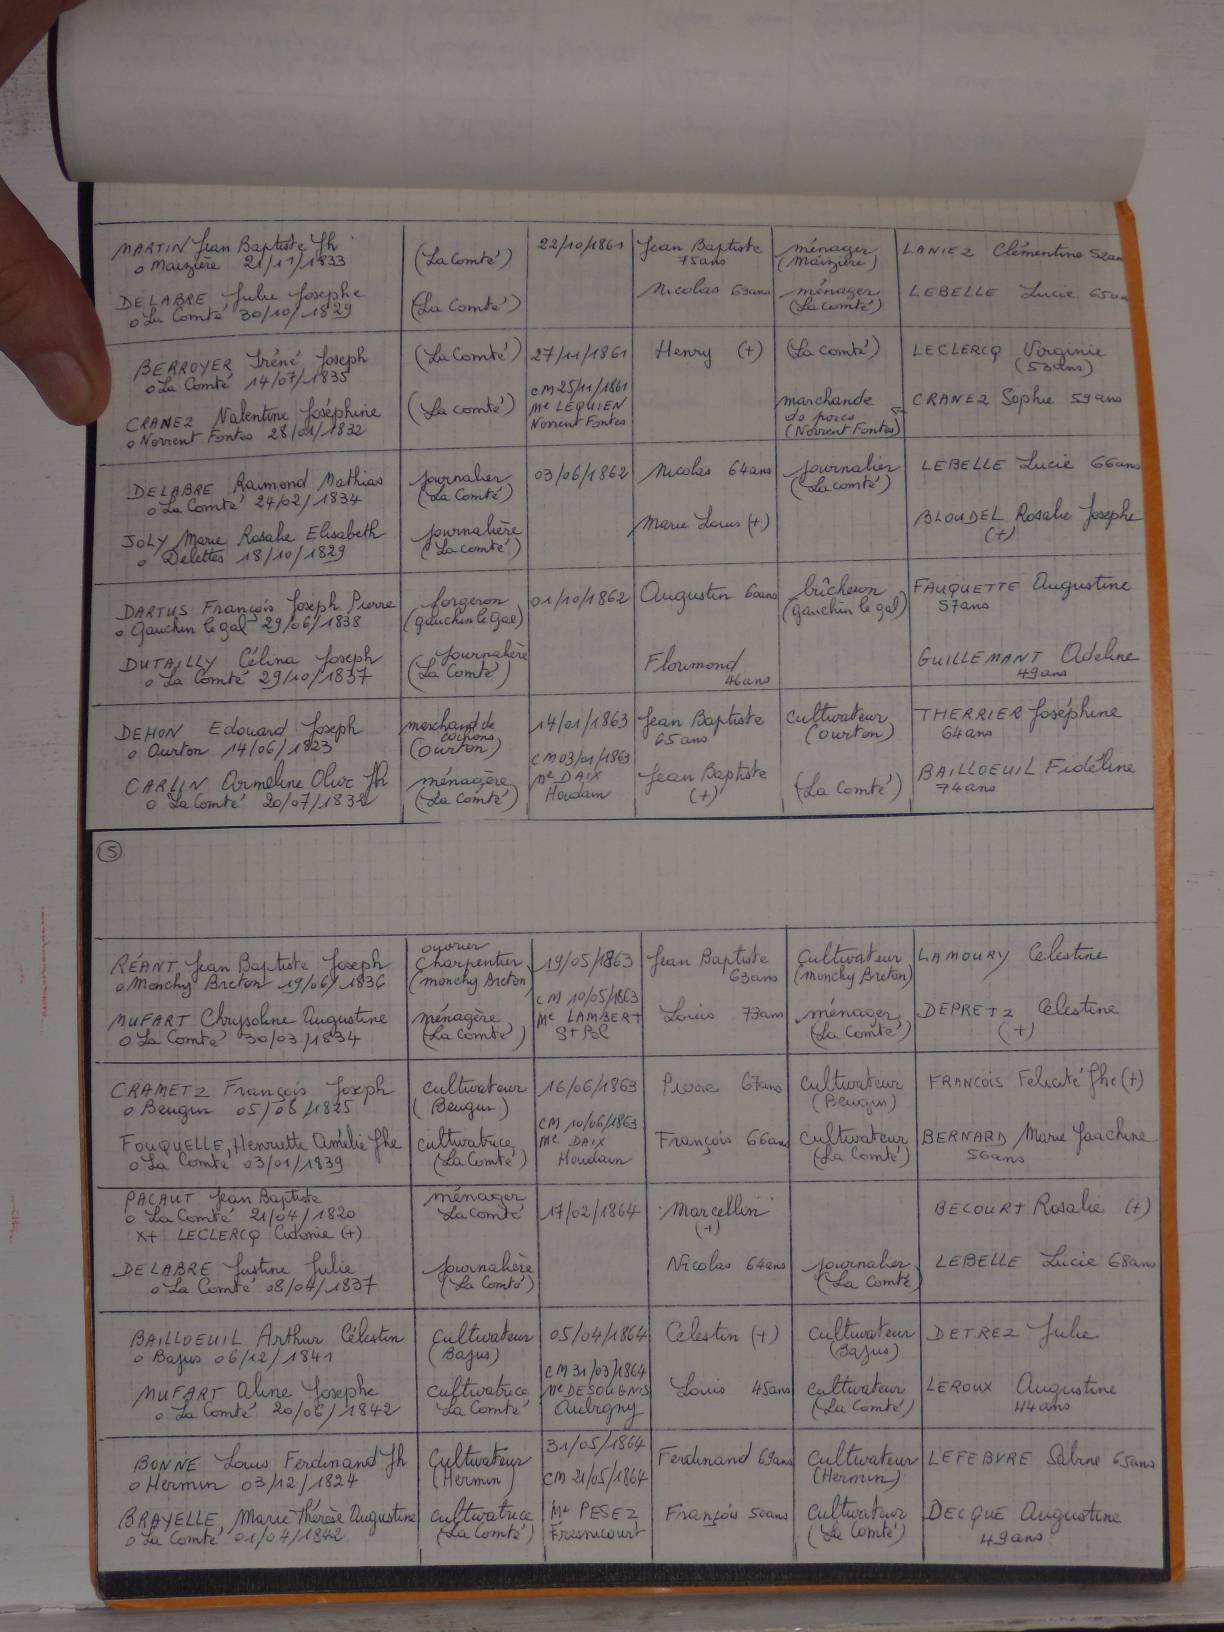 MARTIN Jean Baptiste Jh (La Comté) 22/10/1861 Jean Baptiste ménager LANIEZ Clémentine 52an
o Maizière 21/11/1833 75ans (Maizière)
DELABRE Julie Josephe (La Comté) Nicolas 63ans ménager LEBELLE Lucie 65an
o La Comté 30/10/1829 (La Comté)
BERROYER Iréné Joseph (La Comté) 27/11/1861 Henry (+) (La Comté) LECLERCQ Virginie
o La Comté 14/07/1835 (53ans)
CRANEZ Valentine Joséphine (La Comté) CM 25/11/1861 marchande CRANEZ Sophie 59ans
o Norrent Fontes 28/01/1832 Me LEQUIEN de porcs
Norrent Fontes (Norrent Fontes)
DELABRE Raimond Mathias journalier 03/06/1862 Nicolas 64ans journalier LEBELLE Lucie 66ans
o La Comté 24/02/1834 (La Comté) (La comté)
JOLY Marie Rosalie Elisabeth journalière Marie Louis (+) BLOUDEL Rosalie Josephe
o Delettes 18/10/1829 (La comté) (+)
DARTUS François Joseph Pierre forgeron 01/10/1862 Augustin 60ans bûcheron FAUQUETTE Augustine
o Gauchin le gal 29/06/1838 (gauchin le Gal) (gauchin le gal) 57ans
DUTAILLY Célina Joseph journalière Florimond GUILLEMANT Adeline
o La Comté 29/10/1837 (La Comté) 46ans 49ans
DEHON Edouard Joseph marchand de 14/01/1863 Jean Baptiste cultivateur THERRIER Joséphine
o Ourton 14/06/1823 cochons (Ourton) 65ans (Ourton) 64ans
CARLIN Armeline Olive Jh ménagère CM 03/01/1863 Jean Baptiste (La Comté) BAILLOEUIL Fidéline
o La Comté 20/07/1832 (La Comté) Me DAIX (+) 74ans
Houdain
5
RÉANT Jean Baptiste Joseph ouvrier 19/05/1863 Jean Baptiste Cultivateur LAMOURY Celestine
o Monchy Breton 19/06/1836 Charpentier (monchy Breton) 63ans (monchy Breton)
MUFART Chrysoline Augustine ménagère CM 10/05/1863 Louis 73ans ménager DEPRETZ Celestine
o La Comté 30/03/1834 (La Comté) Me LAMBERT (La Comté) (+)
St Pol
CRAMETZ François Joseph cultivateur 16/06/1863 Pierre 67ans cultivateur FRANCOIS Felicité Jhe (+)
o Beugin 05/08/1825 (Beugin) (Beugin)
FOUQUELLE, Henriette Amélie Jhe cultivatrice CM 10/06/1863 François 66ans cultivateur BERNARD Marie Joachine
o La Comté 03/01/1839 (La Comté) Me DAIX (La Comté) 56ans
Houdain
PACAUT Jean Baptiste ménager 17/02/1864 Marcellin BECOURT Rosalie (+)
o La Comté 21/04/1820 La Comté (+)
x+ LECLERCQ Cidonie (+)
DELABRE Justine Julie journalière Nicolas 64ans journalier LEBELLE Lucie 68ans
o La Comté 08/04/1837 (La Comté) (La Comté
BAILLOEUIL Arthur Célestin cultivateur 05/04/1864 Celestin (+) cultivateur DETREZ Julie
o Bajus 06/12/1841 (Bajus) (Bajus)
MUFART Aline Josephe cultivatrice CM 31/03/1864 Louis 45ans cultivateur LEROUX Augustine
o La Comté 20/06/1842 La Comté Me DESOUGNIS (La Comté) 44ans
Aubigny
BONNE Louis Ferdinand Jh Cultivateur 31/05/1864 Ferdinand 69ans Cultivateur LEFEBVRE Sabine 65ans
o Hermin 03/12/1824 (Hermin) CM 21/05/1864 (Hermin)
BRAYELLE, Marie Thérèse Augustine cultivatrice Me PESEZ François 50ans Cultivateur DECQUE Augustine
o La Comté 01/04/1842 (La Comté) Fresnicourt (La Comté) 49ans